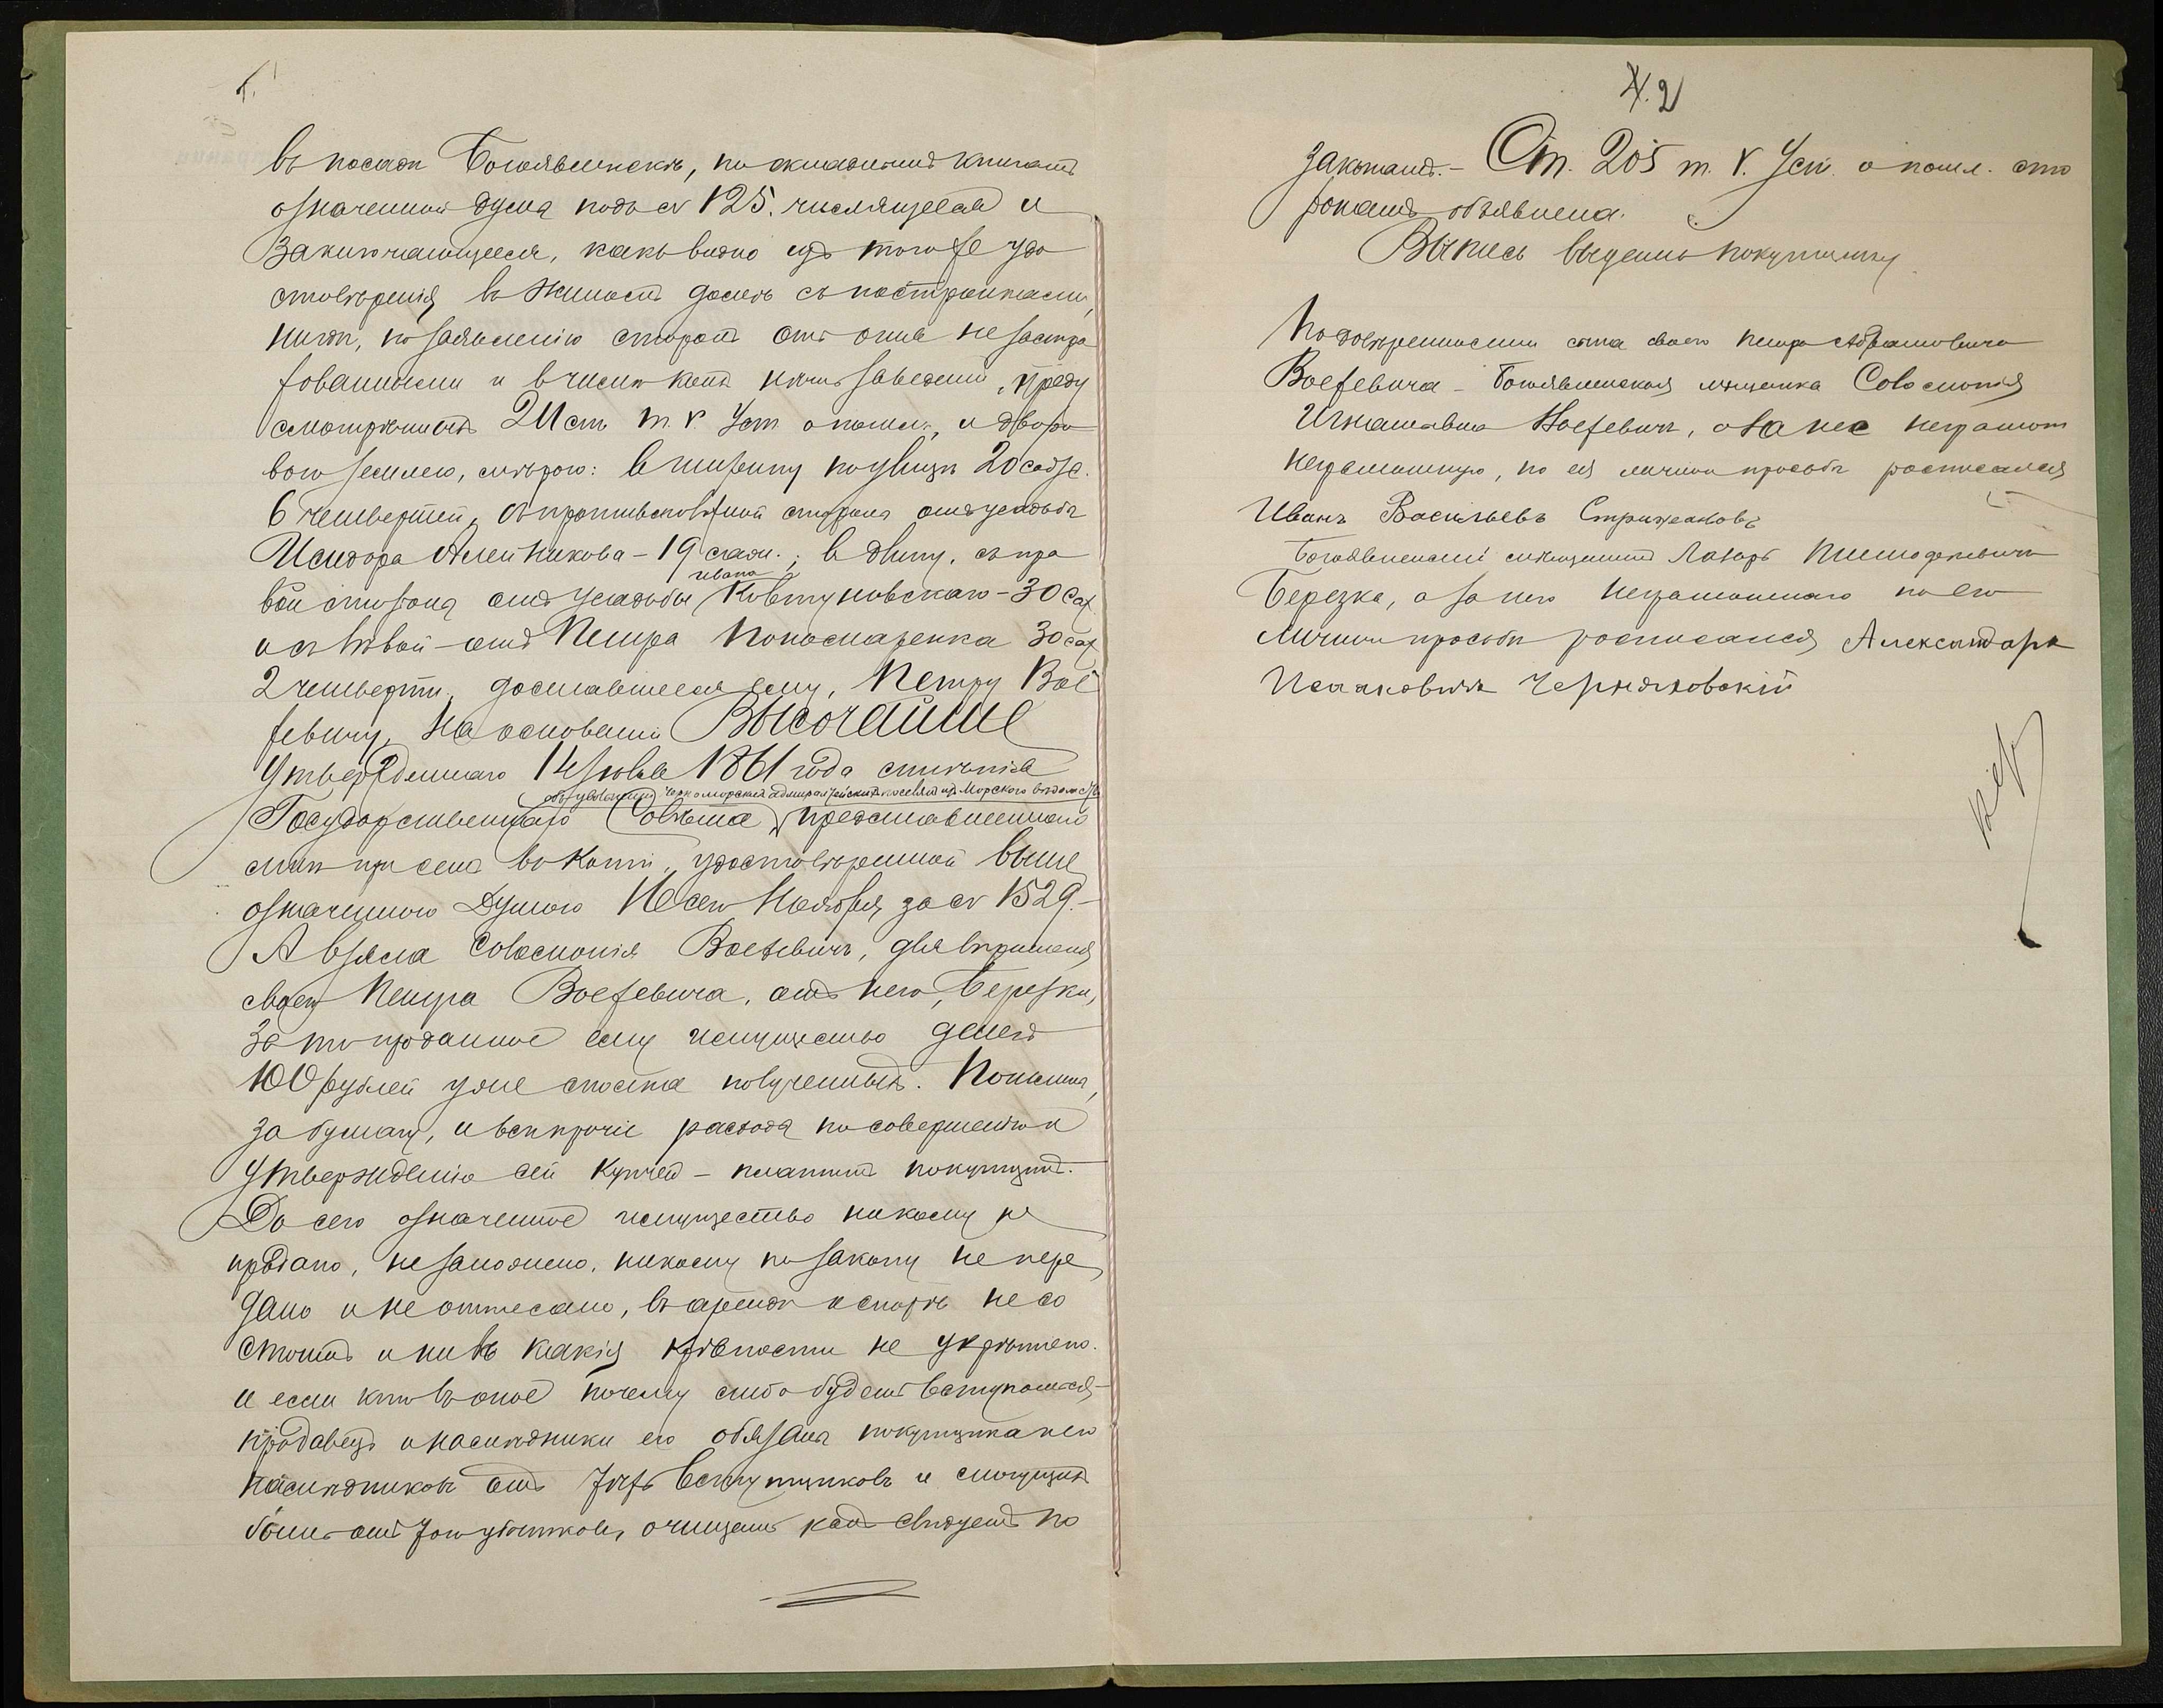 въ посадѣ Богоявленскѣ, по окладнымъ книгамъ
означенной думы подъ № 125. числящееся и
заключающееся, какъ видно изъ того же удо
стовѣренія въ жиломъ домѣ съ постройками,
ниче, по заявленію сторонъ отъ огня не застра
хованными и въ числѣ коихъ нѣтъ заведеній, преду
смотрѣнныхъ 211 ст. т. V Уст. о пошл., и дворо
вою землею, мѣрою: въ ширину по улицѣ 20 саж.
6 четвертей, съ противоположной стороны отъ усадьбы
Исидора Алейникова - 19 саж.; въ длину, съ пра
вой стороны отъ усадьбы Ивана Ковтуновскаго - 30 саж
и съ лѣвой - отъ Петра Пономаренка 30 саж
2 четверти, доставшееся ему, Петру Вое
жевичу, на основаніи Высочайше
утвержденнаго 14 Іюля 1861 года мнѣнія
Государственнаго Совѣта объ увольненіи Черноморскихъ адмиралтейскихъ поселянъ изъ Морского вѣдомства, представленнаго
мнѣ при семъ въ копіи, удостовѣренной выше
означенною Думою сего Ноября за № 1529.-
А взяла Соломонія Воежевичъ, для вѣрителя
своего Петра Воежевича, отъ него, Березки,
за то проданное ему имущество денегъ
100 рублей уже сполна полученныхъ. Пошлины,
за бумагу, и всѣ прочіе расходы по совершенію и
утвержденію сей купчей - платитъ покупщикъ.
До сего означенное имущество никому не
продано, не заложено, никому по закону не пере
дано и не отписано, въ арендѣ и спорѣ не со
стоитъ и ни въ какія крѣпости не укрѣплено.
и если кто въ оное почему либо будетъ вступаться -
продавецъ и наслѣдники его обязаны покупщика и его
наслѣдниковъ отъ тѣхъ вступщиковъ и могущихъ
быть отъ того убытковъ, очищать какъ слѣдуетъ по
2
законамъ. - Ст. 205 т. V. Уст. о пошл. сто
ронамъ объявлена.
Выпись выдать покупщику
По довѣренности сына своего Петра Абрамовича
Воежевича - Богоявленская мѣщанка Соломонія
Игнатьевна Воежевичъ, а за нее неграмот
неграмотную, по ея личной просьбѣ росписался
Иванъ Васильевъ Стрижаковъ
Богоявленскій мѣщанинъ Лазарь Тимофеевичъ
Березка, а за него неграмотнаго по его
личной просьбѣ росписался Александаръ
Исааковичъ Черняховскій